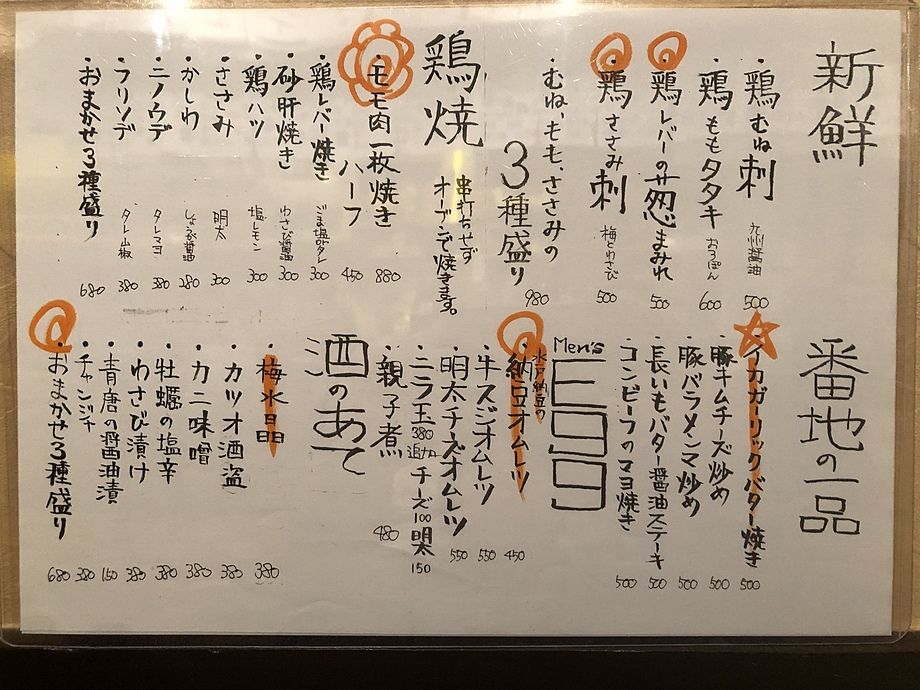 新鮮
・鶏むね刺 九州醤油 500
・鶏ももタタキ おろぽん 600
・鶏レバーの葱まみれ 500
・鶏ささみ刺 梅とわさび 500
・むね、もも、ささみの
3種盛り 980
鶏焼
串打ちせず
オーブンで焼きます。
・モモ肉一枚焼き 880
ハーフ 450
・鶏レバー焼き ごま塩ダレ 300
・砂肝焼き わさび醤油 300
・鶏ハツ 塩レモン 300
・ささみ 明太 300
・かしわ しょうが醤油 280
・ニノウデ タレマヨ 380
・フリソデ タレ山椒 380
・おまかせ3種盛り 680
番地の一品
・イカガーリックバター焼き 500
・豚キムチーズ炒め 500
・豚バラメンマ炒め 500
・長いもバター醤油ステーキ 500
・コンビーフのマヨ焼き 500
Men's
Egg
水戸納豆の
・納豆オムレツ 450
・牛スジオムレツ 550
・明太チーズオムレツ 550
・ニラ玉 380 追加 チーズ100 明太150
・親子煮 480
酒のあて
・梅水晶 380
・カツオ酒盗 380
・カニ味噌 380
・牡蠣の塩辛 380
・わさび漬け 380
・青唐の醤油漬 150
・チャンジャ 380
・おまかせ3種盛り 680